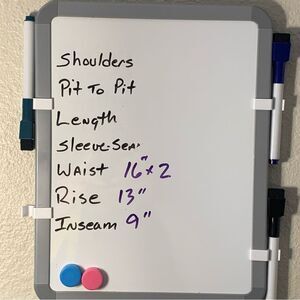 Shoulders
Pit To Pit
Length
Sleeve-Sea
Waist 16" x 2
Rise 13"
Inseam 9"